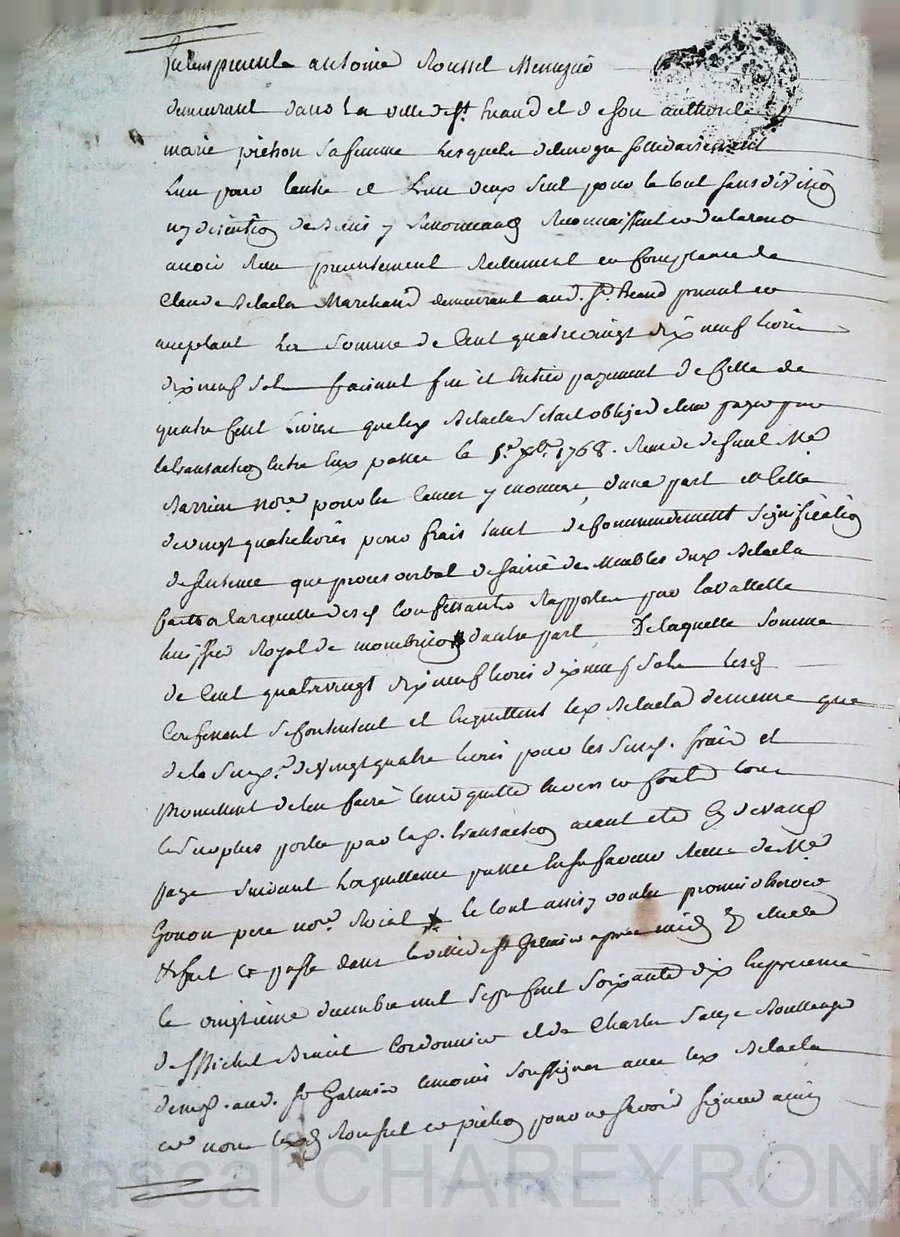 antoine Roussel
demeurant dans la ville de st heand et de son authorité
marie pichon sa femme lesquels de leur gré solidairement
l'un pour l'autre et l'un deux seul pour le tout sans division
ny discution de biens y renonceants reconnaissent et declarent
avoir reçu presentement reellement et comptant de
Claude Delaela Marchand demeurant aud. st heand present et
acceptant la somme de Cent quatre vingt dix neuf livres
dix neuf sols faisant fin et entier payement de celle de
quatre cent livres que led Delaela s'etait obligé de leur payer par
la transaction entre eux passée le 5e xbre 1768. Reçue de deffunt Me
nore pour les causes y d'une part et celle
de vingt quatre livres pour frais tant de commandement signification
de sentence que proces verbal de saisie de Meubles dud Delaela
faits a la requette desd confessants rapportés par Lavallette
huissier Royal de d'autre part De laquelle somme
de Cent quatre vingt dix neuf livres dix neuf sols lesd
Confessants se contentent et en quittent led Delaela de meme que
de la susd. de vingt quatre livres pour les susd. frais et
promettent de l'en faire tenir quitte envers et contre tous
le surplus porté par lad. transaction ayant eté cy devant
payé suivant la quittance passée en sa faveur Reçue de Me
Gonon pere nore Roial le tout ainsy voulu promis
fait et passé dans la ville de st Galmier apres midy
le vingtieme decembre mil sept cent soixante dix en presence
de Michel Cordonnier et de Charles Boullanger
demt. aud. st Galmier temoins soussignes avec led Delaela
et non lesd Roussel et pichon pour ne sçavoir signer ainsy
Pascal CHAREYRON